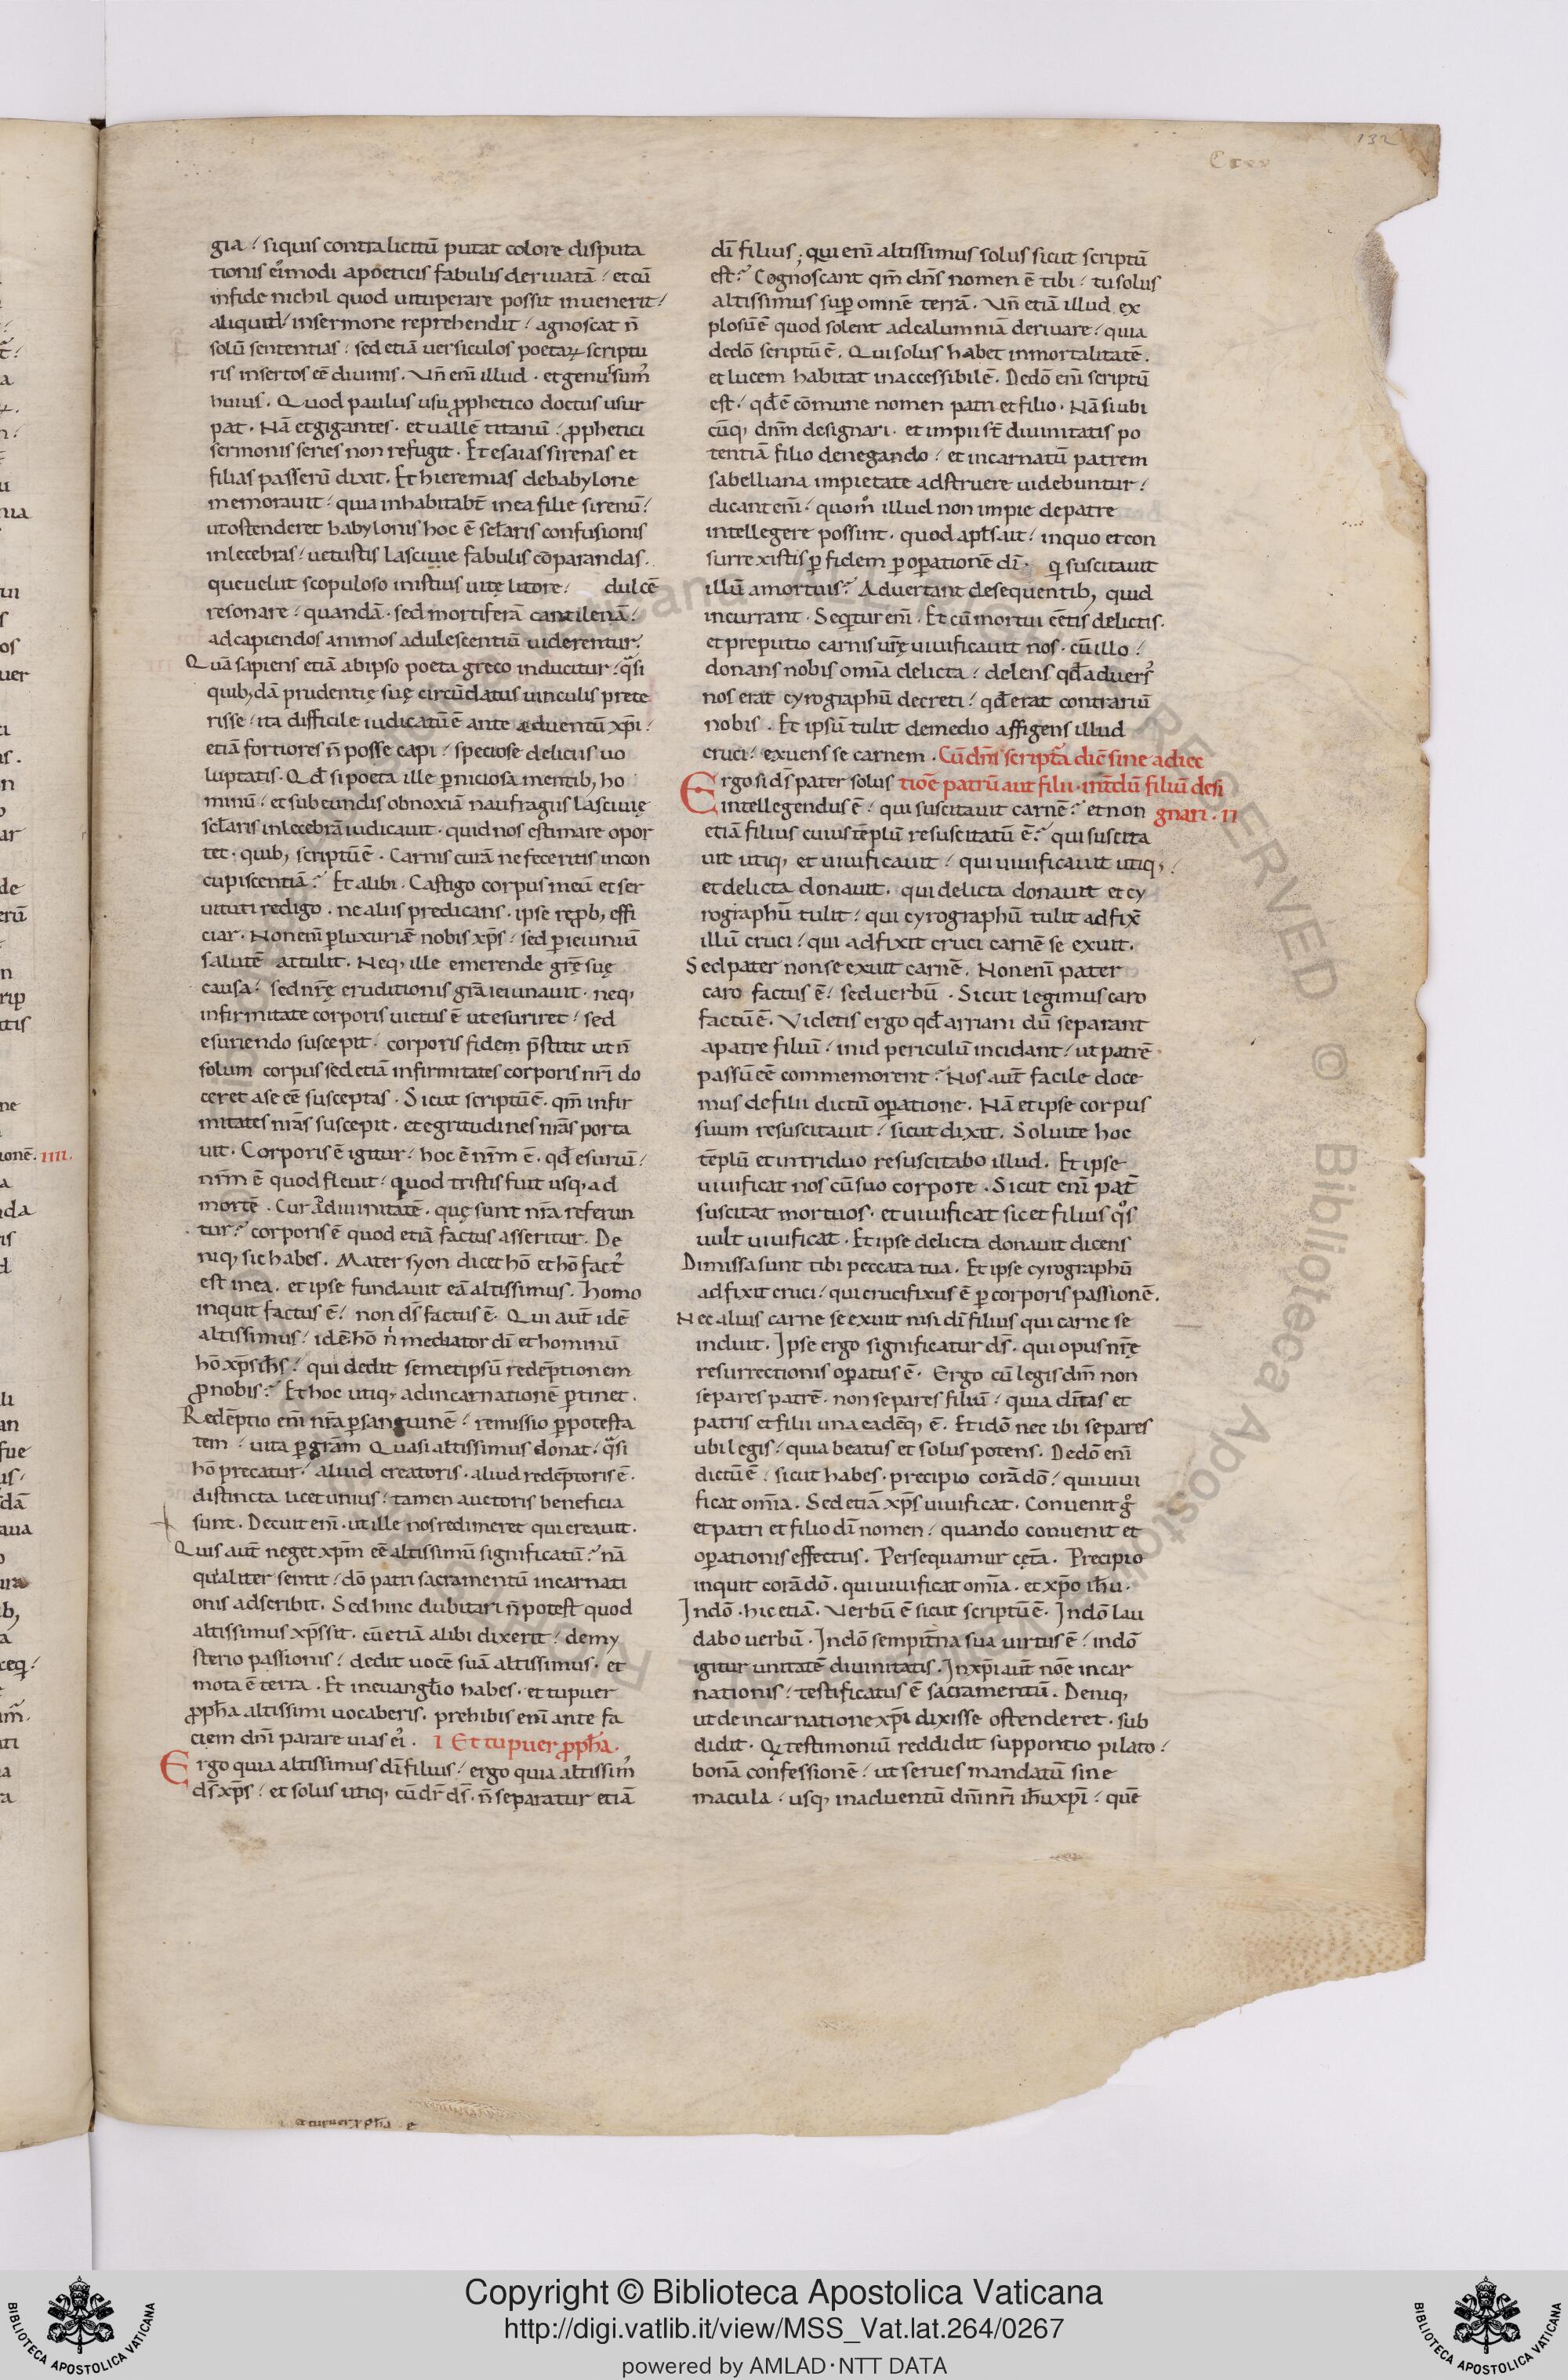 132
gia. siquis contra licitū putat colore disputa
tionis ei᷒modi apoeticis fabulis deriuatā. et cū
infide nichil quod uituperare possit inuenerit.
aliquid insermone reprehendit. agnoscat n̄
solū sententias. sed etiā uersiculos poetaꝝ scriptu
ris insertos eē diuinis. Vn̄ eni᷒ illud. et genus sum᷒
huius. Quod paulus usu ꝓphetico doctus usur
pat. Nā et gigantes. et uallē titanū. ꝓphetici
sermonis series non refugit. Et esaias sirenas et
filias passerū dixit. Et hieremias debabylone
memorauit. quia inhabitabt̄ inea filie sirenū.
ut ostenderet babylonis hoc ē sct̄aris confusionis
inlecebras. uetustis lasciuie fabulis cōparandas.
que uelut scopuloso inistius uitę litore. dulcē
resonare. quandā. sed mortiferā cantilenā.
ad capiendos animos adulescentiū uiderentur.
Quā sapiens etiā abipso poeta greco inducitur. qᷓsi
quib; dā prudentię suę circūdatus uinculis prete
risse. ita difficile iudicatū ē ante aduentū xp̄i.
etiā fortiores n̄ posse capi. speciose deliciis uo
luptatis. Qd̄ si poeta ille ꝑniciosa mentib; ho
minū. et subeundis obnoxiā naufragiis lasciuię
sct̄aris inlecebrā iudicauit. quid nos estimare opor
tet. quib; scriptū ē. Carnis curā ne feceritis incon
cupiscentiā. Et alibi. Castigo corpus meū et ser
uituti redigo. ne aliis predicans. ipse reꝓb; effi
ciar. Non eni᷒ ꝑ luxuriā nobis xp̄s. sed ꝑ ieiuniū
salutē attulit. Neq; ille emerende grē suę
causa. sed nr̄ę eruditionis grā ieiunauit. neq;
infirmitate corporis uictus ē ut esuriret. sed
esuriendo suscepit. corporis fidem p̄stitit ut n̄
solum corpus sed etiā infirmitates corporis nr̄i do
ceret a se eē susceptas. Sicut scriptū ē. qm̄ infir
mitates nr̄as suscepit. et egritudines nr̄as porta
uit. Corporis ē igitur. hoc ē nr̄m ē. qd̄ esuriū.
nr̄m ē quod fleuit. quod tristis fuit usq; ad
mortē. Cur ad diuinitatē. quę sunt nr̄a referun
tur. corporis ē quod etiā factus asseritur. De
niq; sic habes. Mater syon dicet hō et hō fact᷒
est inea. et ipse fundauit eā altissimus. homo
inquit factus ē. non ds̄ factus ē. Qui aut̄ idē
altissimus. idē hō n̄ mediator dī et hominū
hō xp̄s ih̄s. qui dedit semetipsū redēptionem
ꝓ nobis. Et hoc utiq; adincarnationē ꝑtinet.
Redēptio eni᷒ nr̄a ꝑ sanguinē. remissio ꝑ potesta
tem. uita ꝑ grām Quasi altissimus donat. qᷓsi
hō precatur. aliud creatoris. aliud redēptoris ē.
distincta licet unius. tamen auctoris beneficia
sunt. Decuit eni᷒. ut ille nos redimeret qui creauit.
Quis aut̄ neget xp̄m eē altissimū significatū. nā
qui aliter sentit. dō patri sacramentū incarnati
onis adscribit. Sed hinc dubitari n̄ potest quod
altissimus xp̄s sit. cū etiā alibi dixerit. de my
sterio passionis. dedit uocē suā altissimus. et
mota ē terra. Et ineuangl̄io habes. et tu puer
ꝓph̄a altissimi uocaberis. prehibis eni᷒ ante fa
ciem dn̄i parare uias ei᷒. I Et tu puer ꝓph̄a.
Ergo quia altissimus dī filius. ergo quia altissim᷒
ds̄ xp̄s. et solus utiq; cū dr̄ ds̄. n̄ separatur etiā
dī filius; qui eni᷒ altissimus solus sicut scriptū
est. Cognoscant qm̄ dn̄s nomen ē tibi. tu solus
altissimus suꝑ omnē terrā. Vn̄ etiā illud ex
plosū ē quod solent ad calumniā deriuare. quia
dedō scriptū ē. Qui solus habet inmortalitatē.
et lucem habitat inaccessibilē. Dedō eni᷒ scriptū
est. qd̄ ē cōmune nomen patri et filio. Nā si ubi
cūq; dn̄m designari. et impii st̄ diuinitatis po
tentiā filio denegando. et incarnatū patrem
sabelliana impietate adstruere uidebuntur.
dicant eni᷒. quom̊ illud non impie depatre
intellegere possint. quod apl̄s ait. inquo et con
surrexistis ꝑ fidem ꝑ oꝑationē dī. qi suscitauit
illū amortuis. Aduertant desequentib; quid
incurrant. Seqitur eni᷒. Et cū mortui eētis delictis.
et preputio carnis ur̄ę uiuificauit nos. cū illo.
donans nobis om̄ia delicta. delens qd̄ aduers᷒
nos erat cyrographū decreti. qd̄ erat contrariū
nobis. Et ipsū tulit demedio affigens illud
cruci. exuens se carnem. Cū dn̄s scriptᷓa dic̄ sine adiec
Ergo si ds̄ pater solus tiōe patrū aut filii. int̄dū filiū desi
intellegendus ē. qui suscitauit carnē. et non gnari. II
etiā filius cuius tēplū resuscitatū ē. qui suscita
uit utiq; et uiuificauit. qui uiuificauit utiq;.
et delicta donauit. qui delicta donauit et cy
rographū tulit. qui cyrographū tulit adfix̄
illū cruci. qui adfixit cruci carnē se exuit.
Sed pater non se exuit carnē. Non eni᷒ pater
caro factus ē. sed uerbū. Sicut legimus caro
factū ē. Videtis ergo qd̄ arriani dū separant
apatre filiū. inid periculū incidant. ut patrē
passū eē commemorent. Nos aut̄ facile doce
mus defilii dictū oꝑatione. Nā et ipse corpus
suum resuscitauit. sicut dixit. Soluite hoc
tēplū et intriduo resuscitabo illud. Et ipse
uiuificat nos cū suo corpore. Sicut eni᷒ pat̄
suscitat mortuos. et uiuificat sic et filius q̊s
uult uiuificat. Et ipse delicta donauit dicens
Dimissa sunt tibi peccata tua. Et ipse cyrographū
adfixit cruci. qui crucifixus ē ꝑ corporis passionē.
Nec alius carne se exuit nisi dī filius qui carne se
induit. Ipse ergo significatur ds̄. qui opus nr̄ę
resurrectionis oꝑatus ē. Ergo cū legis dm̄ non
separes patrē. non separes filiū. quia dītas et
patris et filii una eadēq; ē. Et idō nec ibi separes
ubi legis. quia beatus et solus potens. Dedō eni᷒
dictū ē. sicut habes. precipio corā dō. qui uiui
ficat om̄ia. Sed etiā xp̄s uiuificat. Conuenit g̊
et patri et filio dī nomen. quando conuenit et
oꝑationis effectus. Persequamur cęt̄a. Precipio
inquit corā dō. qui uiuificat om̄ia. et xp̄o ih̄u.
Indō. hic etiā. Verbū ē sicut scriptū ē. Indō lau
dabo uerbū. Indō sempit̄na sua uirtus ē. indō
igitur unitatē diuinitatis. Inxp̄i aut̄ nōe incar
nationis. testificatus ē sacramentū. Deniq;
ut de incarnatione xp̄i dixisse ostenderet. sub
didit. Qi testimoniū reddidit sub pontio pilato.
bonā confessionē. ut serues mandatū sine
macula. usq; inaduentū dn̄i nr̄i ih̄u xp̄i. quē
Copyright © Biblioteca Apostolica Vaticana
http://digi.vatlib.it/view/MSS_Vat.lat.264/0267
powered by AMLAD·NTT DATA
BIBLIOTECA APOSTOLICA VATICANA
BIBLIOTECA APOSTOLICA VATICANA